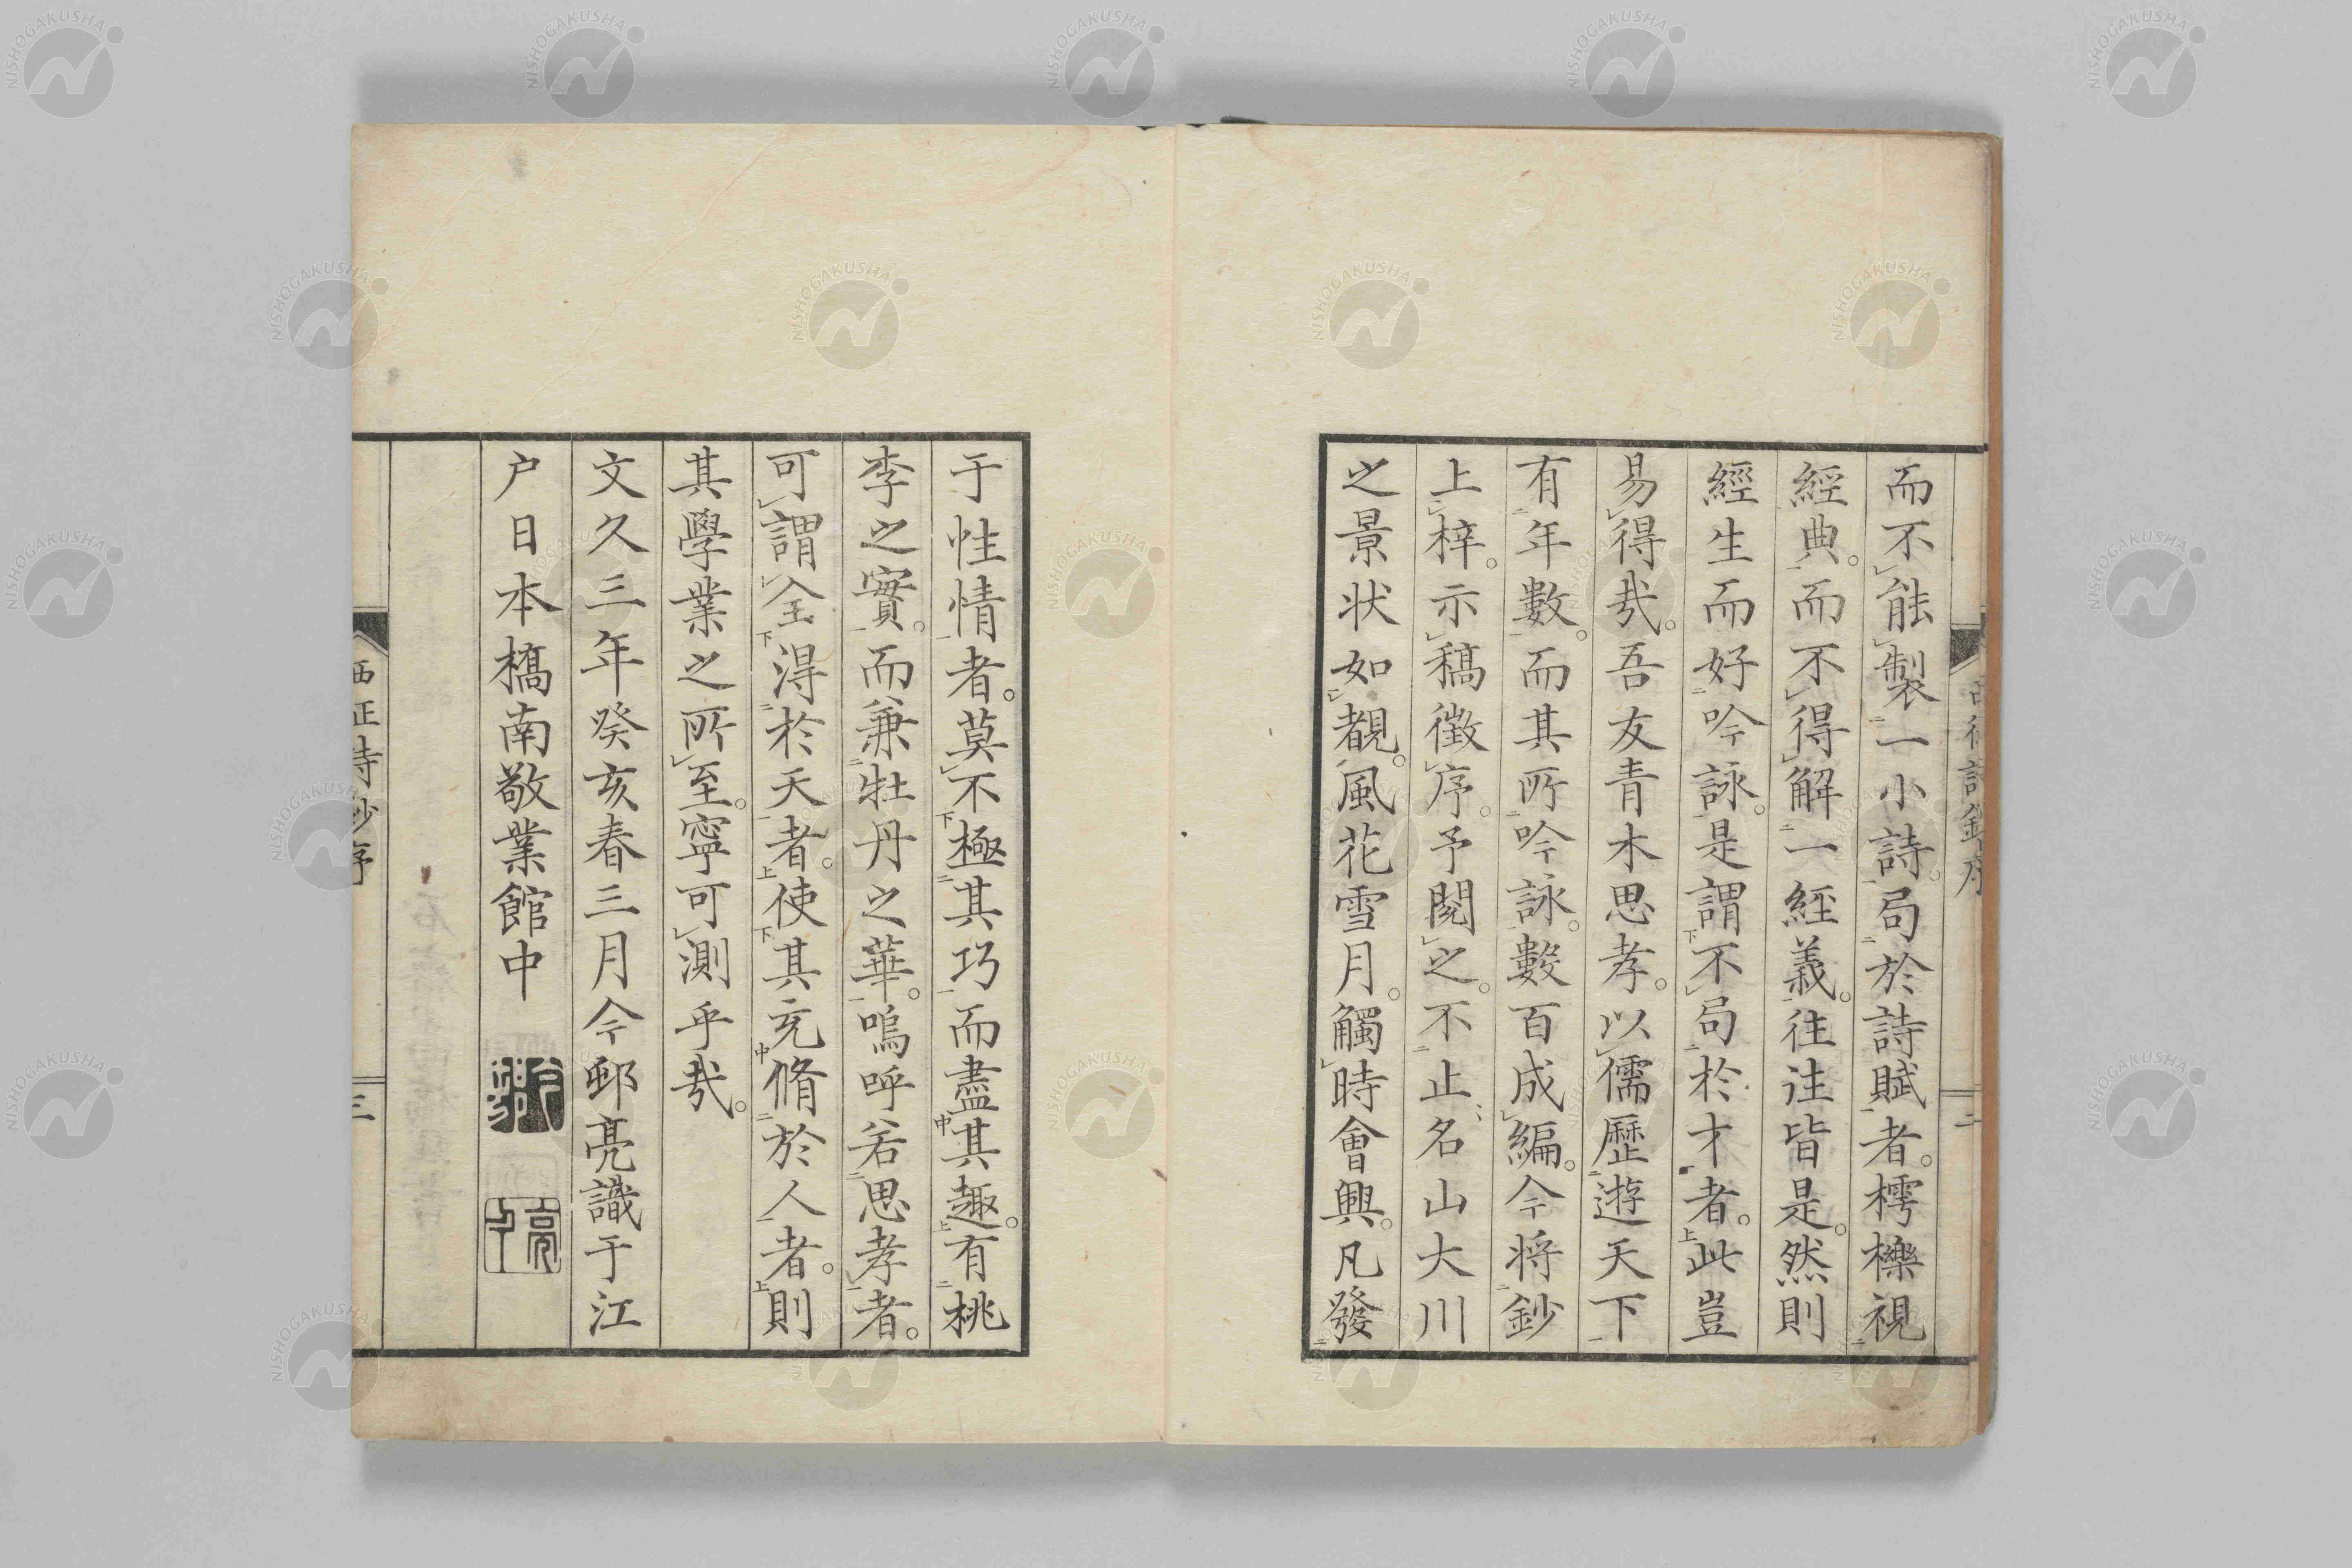 而不能製一小詩。局於詩賦者。樗櫟視
經典。而不得解一經義。往往皆是。然則
經生而好吟詠。是謂不局於才者。此豈
易得哉。吾友青木思孝。以儒歷遊天下
有年數。而其所吟詠。數百成編。今将鈔
上梓。示稿徴序。予閱之。不止名山大川
之景状如覩。風花雪月。觸時會興。凡發
于性情者。莫不極其巧而盡其趣。有桃
李之實。而兼牡丹之華。嗚呼若思孝者。
可謂全得於天者。使其充脩於人者。則
其學業之所至。寧可測乎哉。
文久三年癸亥春三月今邨亮識于江
户日本橋南敬業館中
西征詩鈔序
三
二
NISHOGAKUSHA